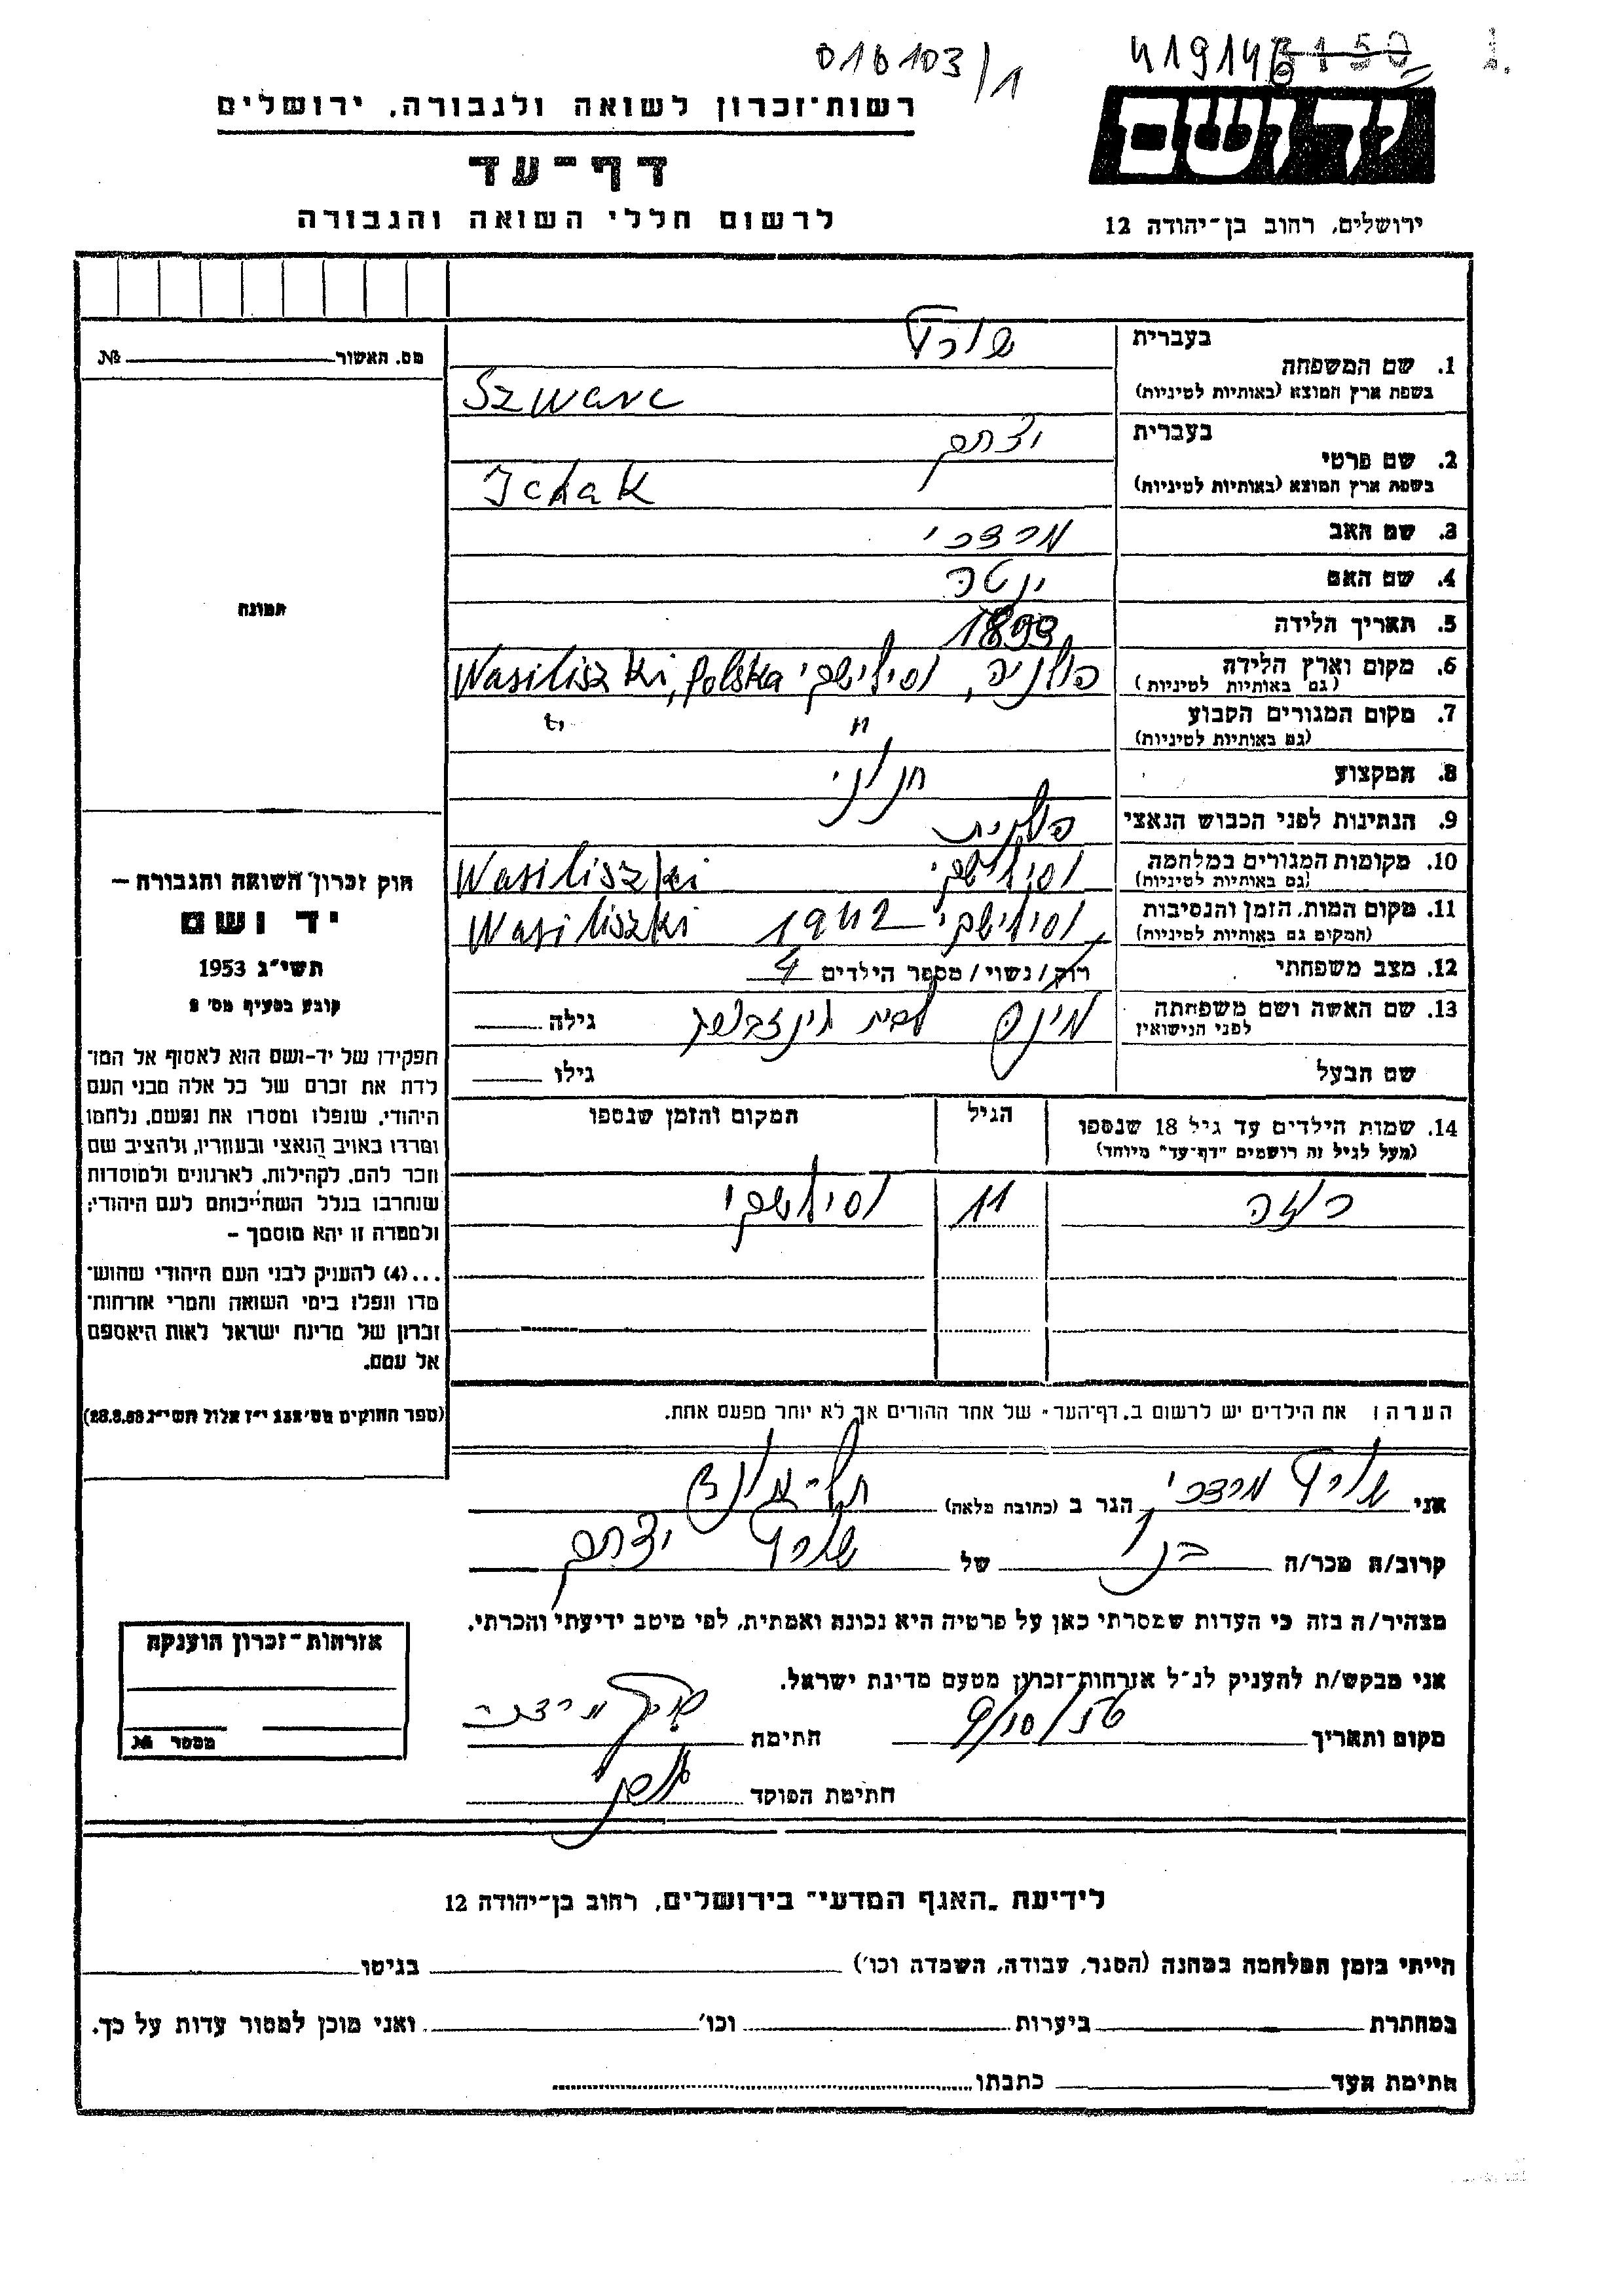 016103/1
419146
רשות־זכרון לשואה ולגבורה, ירושלים
יד ושם
דף־עד
לרשום חללי השואה והגבורה
ירושלים, רחוב בן־יהודה 12
מס. האשור № 
תמונה
חוק זכרון השואה והגבורה –
יד ושם
תשי״ג 1953
קובע בסעיף מס' 2
תפקידו של יד-ושם הוא לאסוף אל המו־
לדת את זכרם של כל אלה מבני העם
היהודי, שנפלו ומסרו את נפשם, נלחמו
ומרדו באויב הנאצי ובעוזריו, ולהציב שם
וזכר להם, לקהילות, לארגונים ולמוסדות
שנחרבו בגלל השתייכותם לעם היהודי;
ולמטרה זו יהא מוסמך –
...(4) להעניק לבני העם היהודי שהוש־
מדו ונפלו בימי השואה והמרי אזרחות־
זכרון של מדינת ישראל לאות היאספם
אל עמם.
(ספר החוקים מס' 132 י״ז אלול תשי״ג 28.8.53)
1. שם המשפחה
בעברית שורץ
בשפת ארץ המוצא (באותיות לטיניות) Szwarc
2. שם פרטי
בעברית יצחק
בשפת ארץ המוצא (באותיות לטיניות) Ichak
3. שם האב מרדכי
4. שם האם ינטה
5. תאריך הלידה 1893
6. מקום וארץ הלידה (גם באותיות לטיניות) פולניה, וסילישקי Wasiliszki, Polska
7. מקום המגורים הקבוע (גם באותיות לטיניות) " "
8. המקצוע חנוני
9. הנתינות לפני הכבוש הנאצי פולנית
10. מקומות המגורים במלחמה (גם באותיות לטיניות) וסילישקי Wasiliszki
11. מקום המות, הזמן והנסיבות (המקום גם באותיות לטיניות) וסילישקי 1942 Wasiliszki
12. מצב משפחתי רוק/נשוי/מספר הילדים 4
13. שם האשה ושם משפחתה לפני הנישואין לבית גילה
שם הבעל גילו
14. שמות הילדים עד גיל 18 שנספו הגיל המקום והזמן שנספו
(מעל לגיל זה רושמים "דף־עד" מיוחד)
11 וסילישקי
הערה: את הילדים יש לרשום ב„דף־העד" של אחד ההורים אך לא יותר מפעם אחת.
אני שורץ מרדכי הגר ב (כתובת מלאה)
קרוב/ה מכר/ה בנו של שורץ יצחק
מצהיר/ה בזה כי העדות שמסרתי כאן על פרטיה היא נכונה ואמתית, לפי מיטב ידיעתי והכרתי.
אני מבקש/ת להעניק לנ״ל אזרחות־זכרון מטעם מדינת ישראל.
מקום ותאריך חתימה
חתימת הפוקד
אזרחות־זכרון הוענקה
מספר №
לידיעת „האגף המדעי" בירושלים, רחוב בן־יהודה 12
הייתי בזמן המלחמה במחנה (הסגר, עבודה, השמדה וכו') בגיטו
במחתרת ביערות וכו' ואני מוכן למסור עדות על כך.
חתימת העד כתבתו